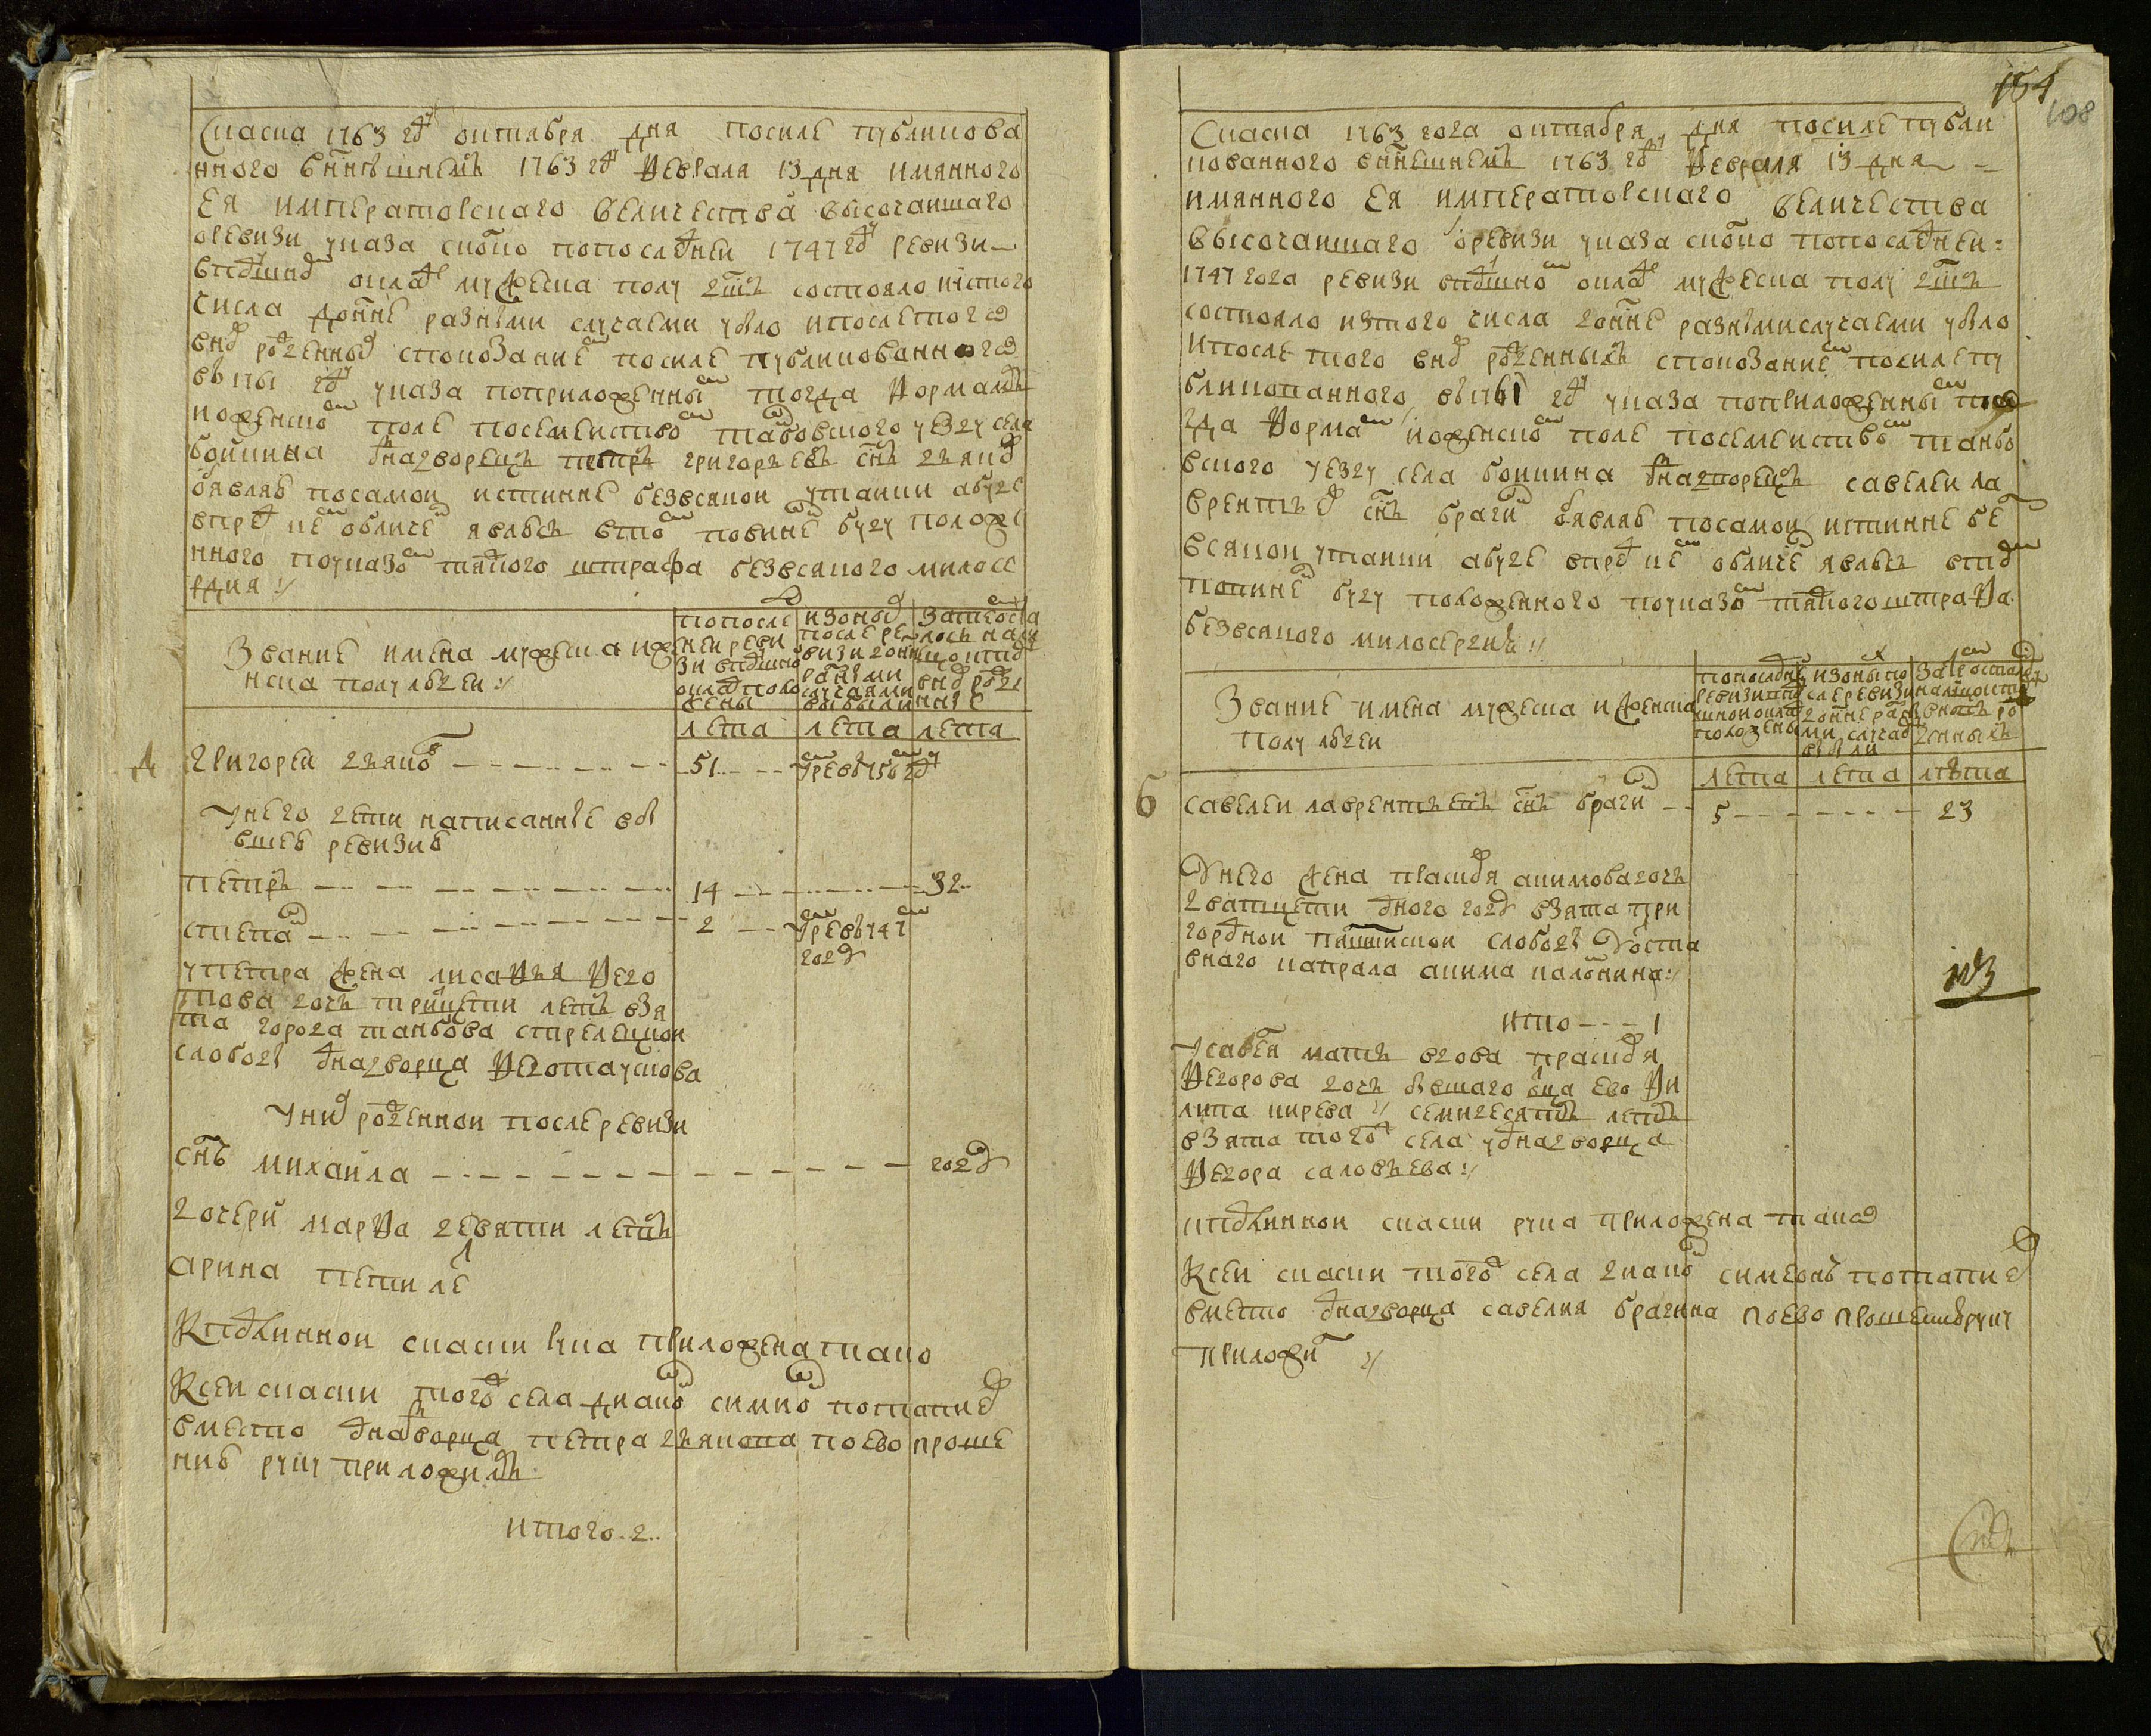 Скаска 1763 году октября дня посиле публикова
нного внынѣшнемъ 1763 году февраля 13 дня имянного
Ея императорского величества высочаишаго
оревизи указа сколко попоследнеи 1747 году ревизи
вподушном окладе мужеска полу душъ состояло ис того
числа доныне разными случаеми убыло ипосле того
вновь рожденных спопозанием посиле публикованного
в 1761 году указа поприложенным тогда формам
иоженском поле посемеиством танбовского уезду села
боикина однодворецъ петръ григорьевъ снъ дьяков
обявляю посамои истинне безвсякои утаики абуде
впред кем обличен явлюсь втом повинен буду положе
нного поуказом тяжкого штрафа безвсякого милосе
рдия
Звание имена мужеска ижe
нска полу людеи
попосле
днеи реви
зи вподушнои
оклад поло
жены
изоных
после ре
визи доны
разными
случаями
выбыли
затем оста
лось нали
цо ипод
внов рожде
нные
лета лета лета
Григореи дьяков 51 умре в 1750 году
Унего дети написанные вбы
вшею ревизию
петръ 14 32
степан 2 умре в 1747
году
упетра жена лисафья Федо
това дочь тритцети летъ взя
та города танбова стрелецкои
слободы однодворца Федота ускова
Уних рожденнои послеревизи
снъ михаила году
дочери марфа девяти летъ
арина пети лет
Кподлиннои скаски рука приложена тако
Ксеи скаски тогож села дьякон симион потапиев
вместо однодворца петра дьякова поево проше
нию руку приложилъ
итого 2
154
108
Скаска 1763 года октября дня посиле публи
кованного внынешнемъ 1763 году февраля 13 дня
имянного Ея императорского величества
высочаишаго оревизи указа сколко попоследнеи
1747 года ревизи вподушном окладе мужеска полу душъ
состояло изтого числа доныне разными случаеми убыло
ипосле того вновь рожденныхъ спопозанием посиле пу
бликованного в 1761 году указа поприложенным тог
да формам иоженском поле посемеиством танбо
вского уезду села боикина однодворецъ савелеи ла
врентьев снъ брагин обявляю посамои истинне без
всякои утаики абуде впред кем обличен явлюсь втом
повинен буду положенного поуказом тяжкого штрафа
безвсякого милосердия
Звание имена мужеска иженска
полу людеи
попоследнеи
ревизи вподу
шнои оклад
положены
изоных по
сле ревизи
доныне разны
ми случаями
выбыли
затем осталось
налицо ипод
вновь ро
жденныхъ
лета лета лѣта
6 савелеи лаврентьевъ снъ брагин 5 23
Унего жена праскофя акимова дочь
дватцети одного году взята при
городнои слободы
капрала акима калонина
итого 1
Усавелья мать вдова праскофя
Федорова дочь бывшаго отца ево Фи
липа кирева семидесятъ летъ
взята тогож села уоднодворца
Федора саловьева
кподлиннои скаски рука приложена тако
Ксеи скаски тогож села дьякон симеонъ потапиев
вместо однодворца савелия брагина поево прошению руку
приложил
103